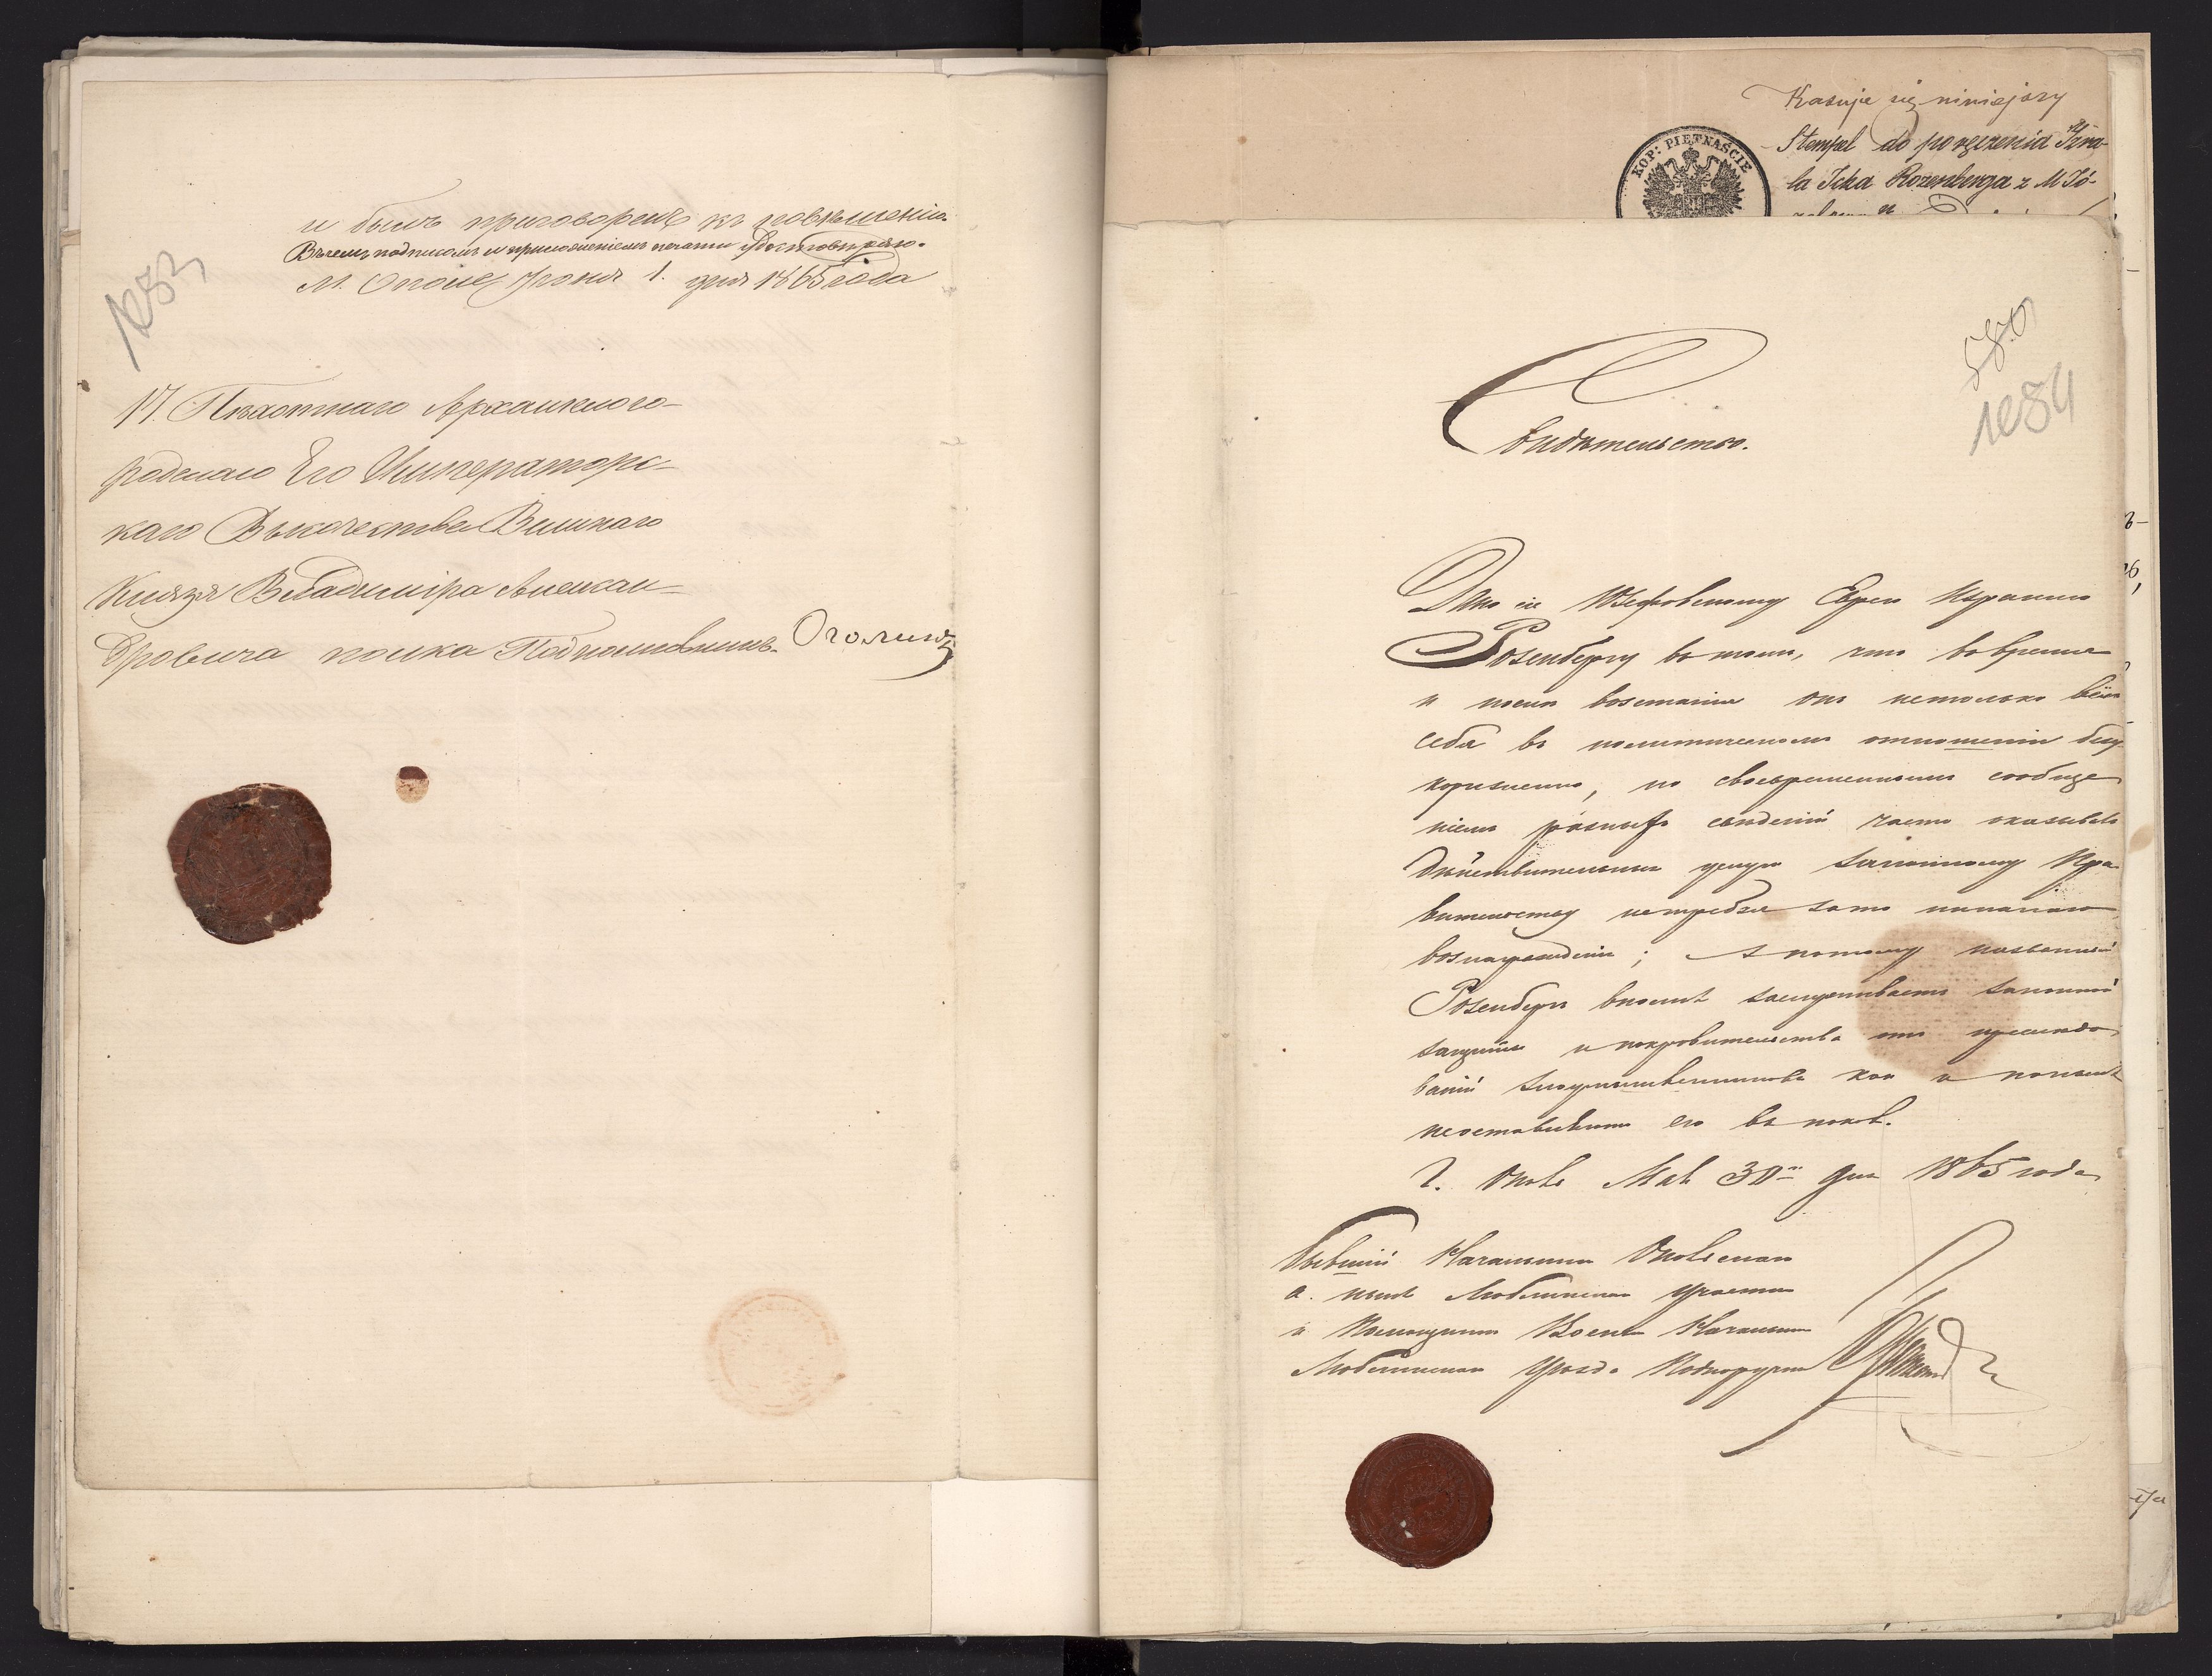 и былъ приговоренъ къ повѣшенію.
Въ чемъ подписомъ и приложеніемъ печати удостовѣряю.
М. Ополе, Іюня 1. дня 1865 года
1083
17. Пѣхотнаго Архангелого-
родскаго Его Императорс-
каго Высочества Великаго
Князя Владиміра Алексан-
дровича полка Подполковникъ
Kasuje się niniejszy
Stempel do poręczenia Izra-
la Icka Rozenberga z M Jó-
KOP: PIĘTNAŚCIE
580
1084
Свидѣтельство.
Дано сіе Юзефовскому Еврею Израилю
Розенбергу въ томъ, что во время
возстанія онъ нетолько вёлъ
себя въ политическомъ отношеніи безу-
коризненно, но своевременнымъ сообще
ніемъ разныхъ свѣденій часто оказывалъ
дѣйствительныя услуги законному Пра
вительству нетребуя зато никакого
вознагражденія; а потому названный
Розенбергъ вполнѣ заслуживаетъ законной
защиты и покровительства отъ преслѣдо
ваній злоумышленниковъ кои и понынѣ
неоставляютъ его въ покоѣ.
г. Ополе Мая 30го дня 1865 года
Бывшій Начальникъ Опольскаго
а нынѣ Люблинскаго участка
и Помощникъ Военн Начальника
Люблинскаго Уѣзда